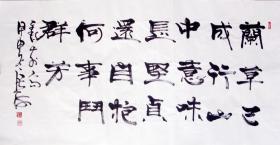 蘭草已
成行山
中意味
長堅貞
還自抱
何事鬥
群芳